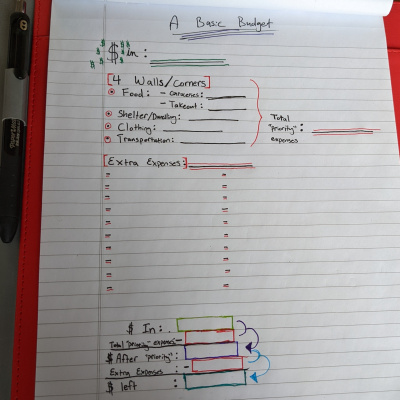 A Basic Budget
$ in:
[4 Walls/Corners]
Food: - Groceries:
- Takeout:
Shelter/Dwelling:
Clothing:
Transportation:
Total
"priority":
expenses
[Extra Expenses:]
$ In:
Total "priority" expenses -
$ After "priority":
Extra Expenses : -
$ left :